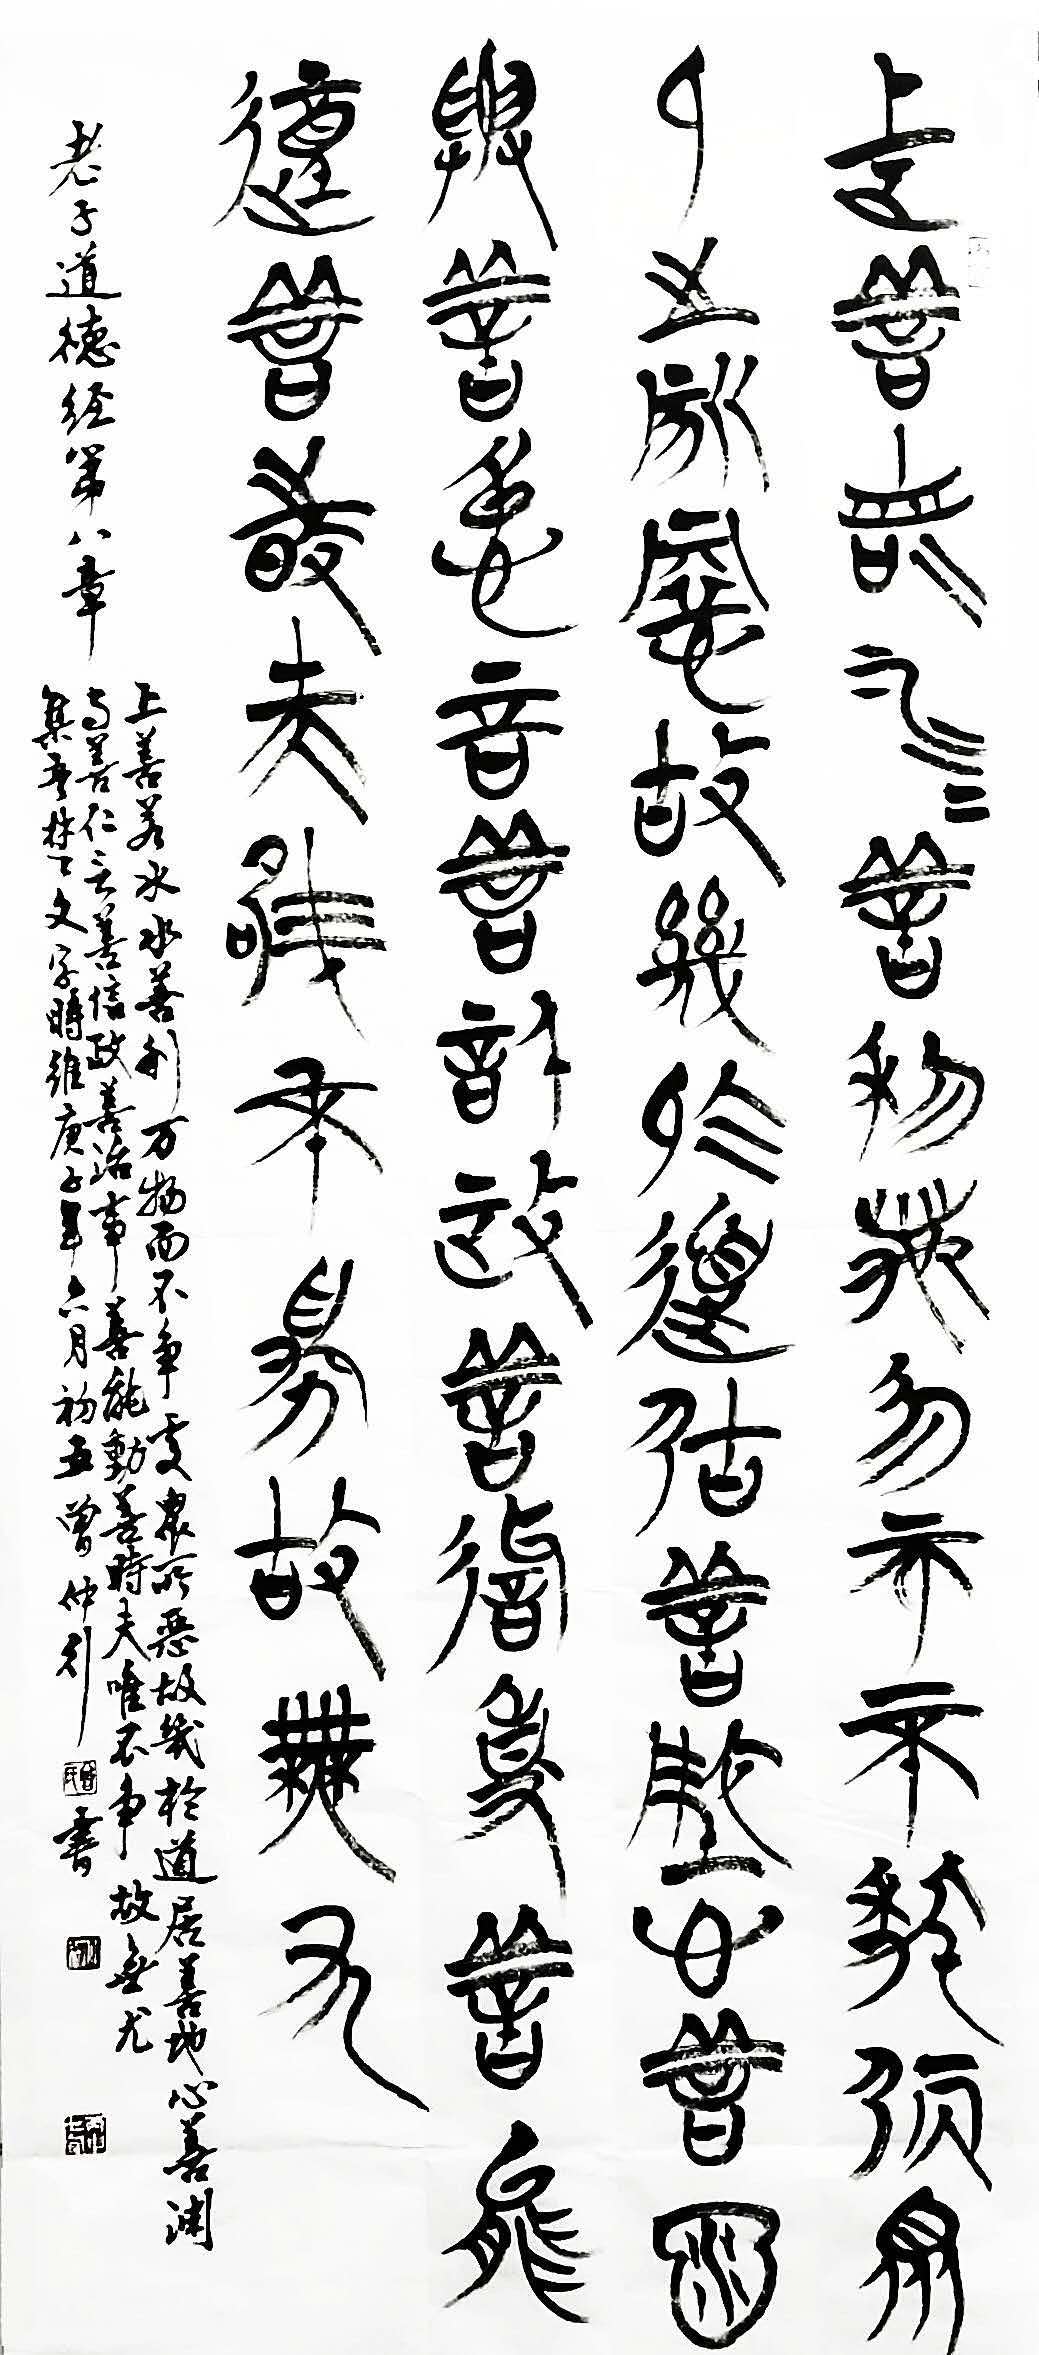 上善若水水善利萬勿而不爭處眾
人之所惡故幾於道居善地心善淵
與善仁言善信政善治事善能
動善時夫唯不爭故無尤
老子道德经第八章
上善若水水善利万物而不争處衆所惡故幾於道居善地心善渊
与善仁言善信政善治事善能動善時夫唯不争故無尤
集文字時維庚子年六月初五曾仲引書